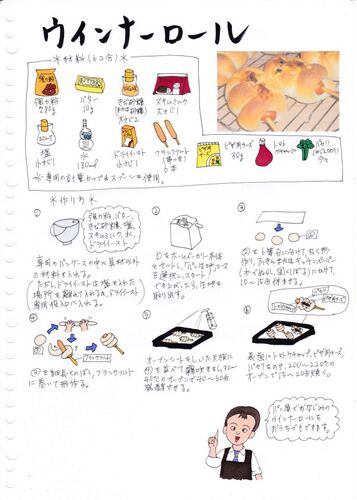 ウインナーロール
＊材料（6コ分）＊
強力粉
280g
バター
10g
きび砂糖
大さじ2
スキムミルク
大さじ1
塩
小さじ1
水
180ml
ドライイースト
小さじ1
フランクフルト
6本
ピザ用チーズ
30g
トマトケチャップ
パセリ
少々
＊専用の計量カップ&スプーンを使用。
＊作り方＊
①
強力粉、バター、
きび砂糖、塩、
スキムミルク、水、
ドライイースト
専用のパンケースの中に具材以外
の材料を入れる。
ただしドライイーストは塩を入れた
場所を離して入れるか、ドライイースト
専用投入口へ入れる。
②
①をホームベーカリー本体
にセットし、パン生地コース
を選択しスタート！
できあがったら、生地を
取り出す。
③
②を6等分に分けて、丸く形
作り、ふきんまたはキッチンペーパー
（水でぬらし固くしぼる）にかけて、
10〜15分休ませる。
④
フランクフルト
③を細長くのばし、フランクフルト
に巻いて形作る。
⑤
オーブンシートをしいた天板に
④を並べて霧吹きをし、30〜
40℃のオーブンで40〜60分
発酵させる。
⑥
トマトケチャップ
パセリ
ピザ用チーズ
表面にトマトケチャップ、ピザ用チーズ、
パセリをのせ、200〜220℃の
オーブンで15〜20分焼く。
パン屋でおなじみの
ウインナーロールを
おうちでもできます。